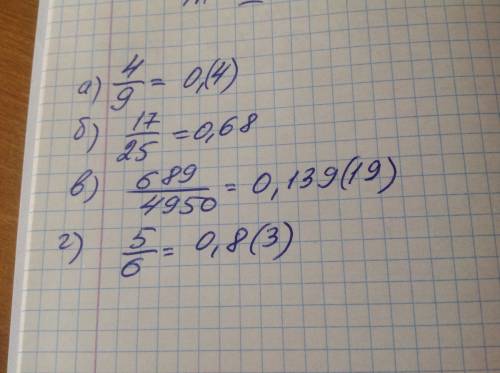 а) 4/9 = 0,(4)
б) 17/25 = 0,68
в) 689/4950 = 0,139(19)
г) 5/6 = 0,8(3)